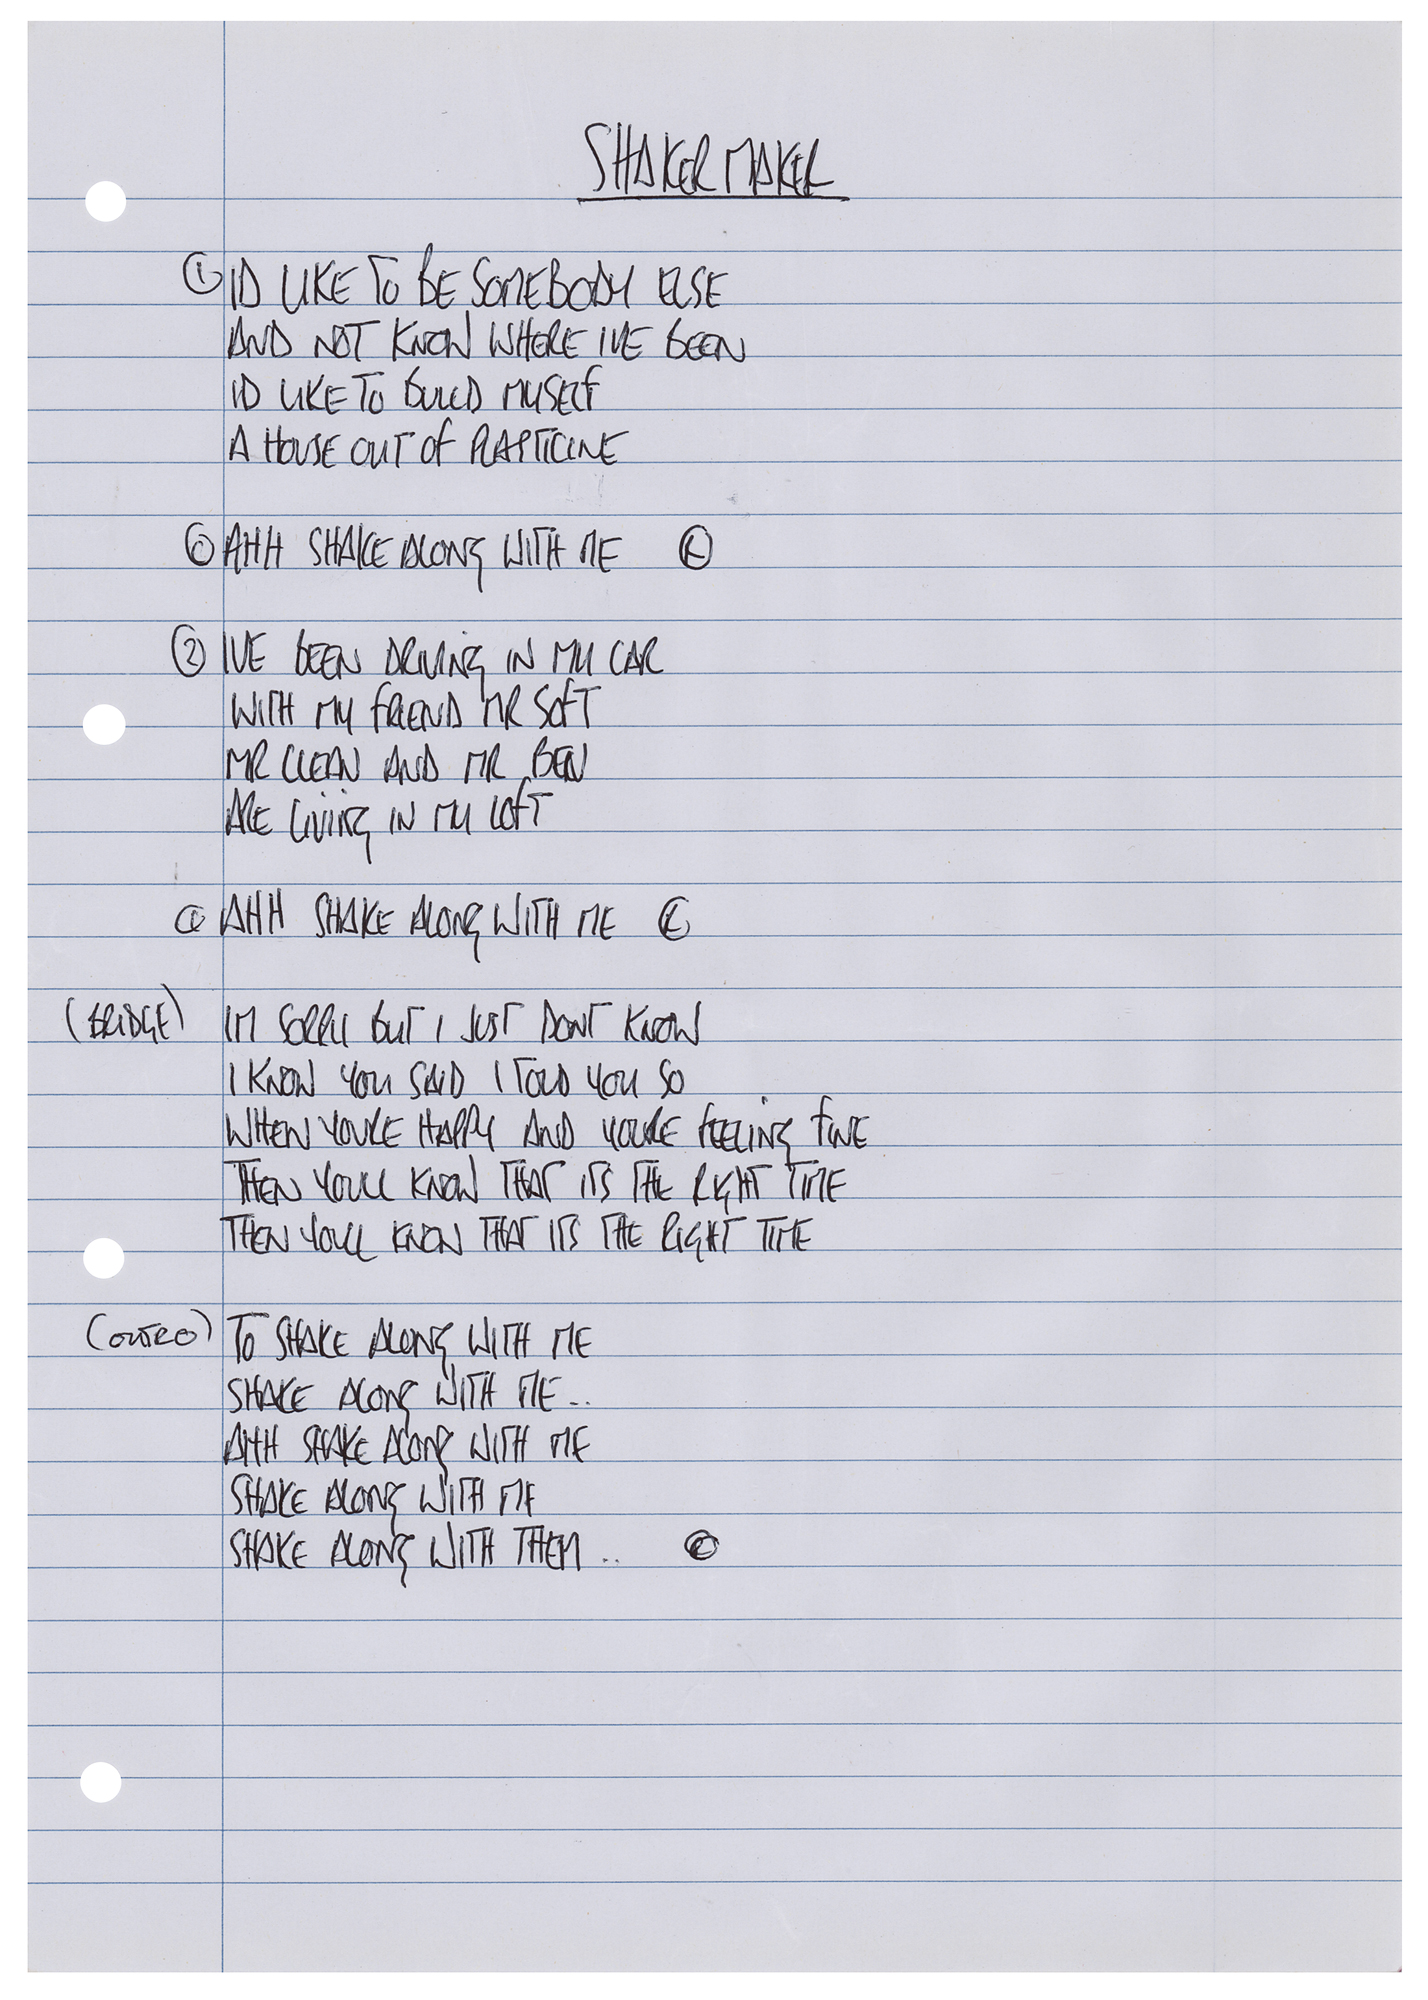 SHAKERMAKER
① ID LIKE TO BE SOMEBODY ELSE
AND NOT KNOW WHERE IVE BEEN
ID LIKE TO BUILD MYSELF
A HOUSE OUT OF PLAPTICINE
© AHH SHAKE ALONG WITH ME
② IVE BEEN DRIVING IN MY CAR
WITH MY FRIEND MR SOFT
MR CLEAN AND MR BEN
ARE LIVING IN MY LOFT
© AHH SHAKE ALONG WITH ME
(BRIDGE) IM SORRY BUT I JUST DONT KNOW
I KNOW YOU SAID I TOLD YOU SO
WHEN YOURE HAPPY AND YOURE FEELING FINE
THEN YOULL KNOW THAT ITS THE RIGHT TIME
THEN YOULL KNOW THAT ITS THE RIGHT TIME
(OUTRO) TO SHAKE ALONG WITH ME
SHAKE ALONG WITH ME ..
AHH SHAKE ALONG WITH ME
SHAKE ALONG WITH ME
SHAKE ALONG WITH THEM ..